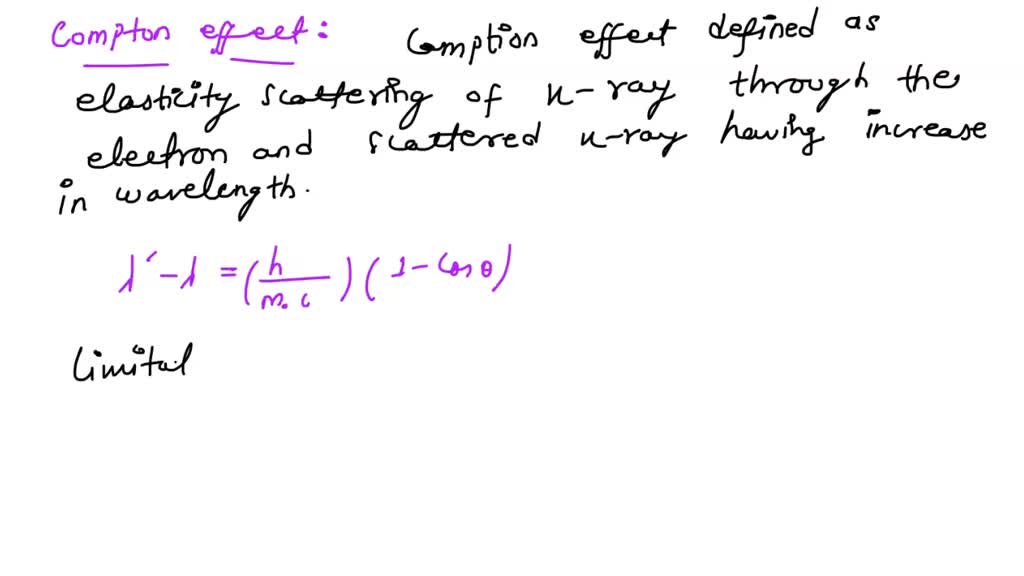 Compton effect: Comption effect defined as
elasticity scattering of x-ray through the
electron and scattered x-ray having increase
in wavelength.
λ' - λ = (h / m₀ c) (1 - Cos θ)
Limital